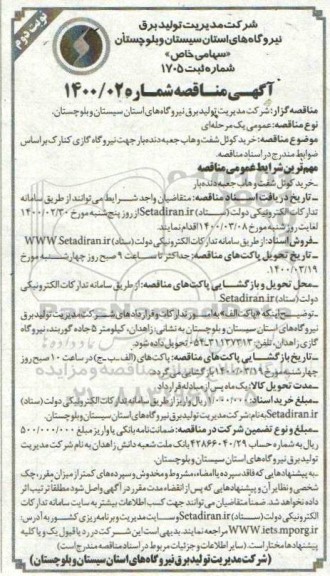 نوبت دوم
شرکت مدیریت تولید برق
نیروگاه‌های استان سیستان و بلوچستان
«سهامی خاص»
شماره ثبت ۱۷۰۵
آگهی مناقصه شماره ۱۴۰۰/۰۲
مناقصه گزار: شرکت مدیریت تولید برق نیروگاه های استان سیستان و بلوچستان.
نوع مناقصه: عمومی یک مرحله‌ای
موضوع مناقصه: خرید کوئل شفت و هاب جعبه دنده بار جهت نیروگاه گازی کنارک براساس
ضوابط مندرج در اسناد مناقصه.
مهم‌ترین شرایط عمومی مناقصه
ـ خرید کوئل شفت و هاب جعبه دنده بار
ـ تاریخ دریافت اسناد مناقصه: متقاضیان واجد شرایط می‌توانند از طریق سامانه
تدارکات الکترونیکی دولت (ستاد) Setadiran.ir از روز پنج‌شنبه مورخ ۱۴۰۰/۰۲/۳۰
لغایت روز شنبه مورخ ۱۴۰۰/۰۳/۰۸ اقدام نمایند.
ـ فروش اسناد: از طریق سامانه تدارکات الکترونیکی دولت (ستاد) WWW.Setadiran.ir
ـ تاریخ تحویل پاکت‌های مناقصه: حداکثر تا ساعت ۹ صبح روز چهارشنبه مورخ
۱۴۰۰/۰۳/۱۹.
ـ محل تحویل و بازگشایی پاکت‌های مناقصه: از طریق سامانه تدارکات الکترونیکی
دولت (ستاد) Setadiran.ir
ـ توضیح اینکه «پاکت الف» به امور تدارکات و قراردادهای شرکت مدیریت تولید برق
نیروگاه‌های استان سیستان و بلوچستان به نشانی: زاهدان، کیلومتر ۵ جاده گوربند، نیروگاه
گازی زاهدان، تلفن: ۳۱۱۳۷۳۱۳-۰۵۴ تحویل داده شود.
ـ تاریخ بازگشایی پاکت‌های مناقصه: پاکت‌های (الف، ب، ج) در ساعت ۱۰ صبح روز
چهارشنبه مورخ ۱۴۰۰/۰۳/۱۹ بازگشایی می‌گردد.
ـ مدت تحویل کالا: یک ماه پس از مبادله قرارداد.
ـ مبلغ خرید اسناد: ۱/۰۰۰/۰۰۰ ریال واریز از طریق سامانه تدارکات الکترونیکی دولت (ستاد)
Setadiran.ir به نام شرکت مدیریت تولید برق نیروگاه‌های استان سیستان و بلوچستان.
ـ مبلغ و نوع تضمین شرکت در مناقصه: ضمانت‌نامه بانکی یا واریز مبلغ ۵۰۰/۰۰۰/۰۰۰
ریال به شماره حساب ۴۲۸۶۶۰۴۰/۲۹ بانک ملت شعبه دانش زاهدان به نام شرکت مدیریت
تولید برق نیروگاه‌های استان سیستان و بلوچستان.
ـ به پیشنهادهایی که فاقد سپرده یا امضاء، مشروط و مخدوش و سپرده‌های کمتر از میزان مقرر، چک
شخصی و نظایر آن و پیشنهادهایی که پس از انقضاء مدت مقرر در آگهی واصل شود مطلقا ترتیب اثر
داده نخواهد شد. ضمنا متقاضیان می‌توانند جهت کسب اطلاعات بیشتر به سایت سامانه تدارکات
الکترونیکی دولت (ستاد) Setadiran.ir و سایت مدیریت و برنامه‌ریزی کشور به آدرس:
WWW.iets.mporg.ir مراجعه نمایند. بدیهی است این شرکت در رد یا قبول یک و یا کلیه
پیشنهادها مختار است. (سایر اطلاعات و جزئیات مربوط در اسناد مناقصه مندرج است)
(شرکت مدیریت تولید برق نیروگاه های استان سیستان و بلوچستان)